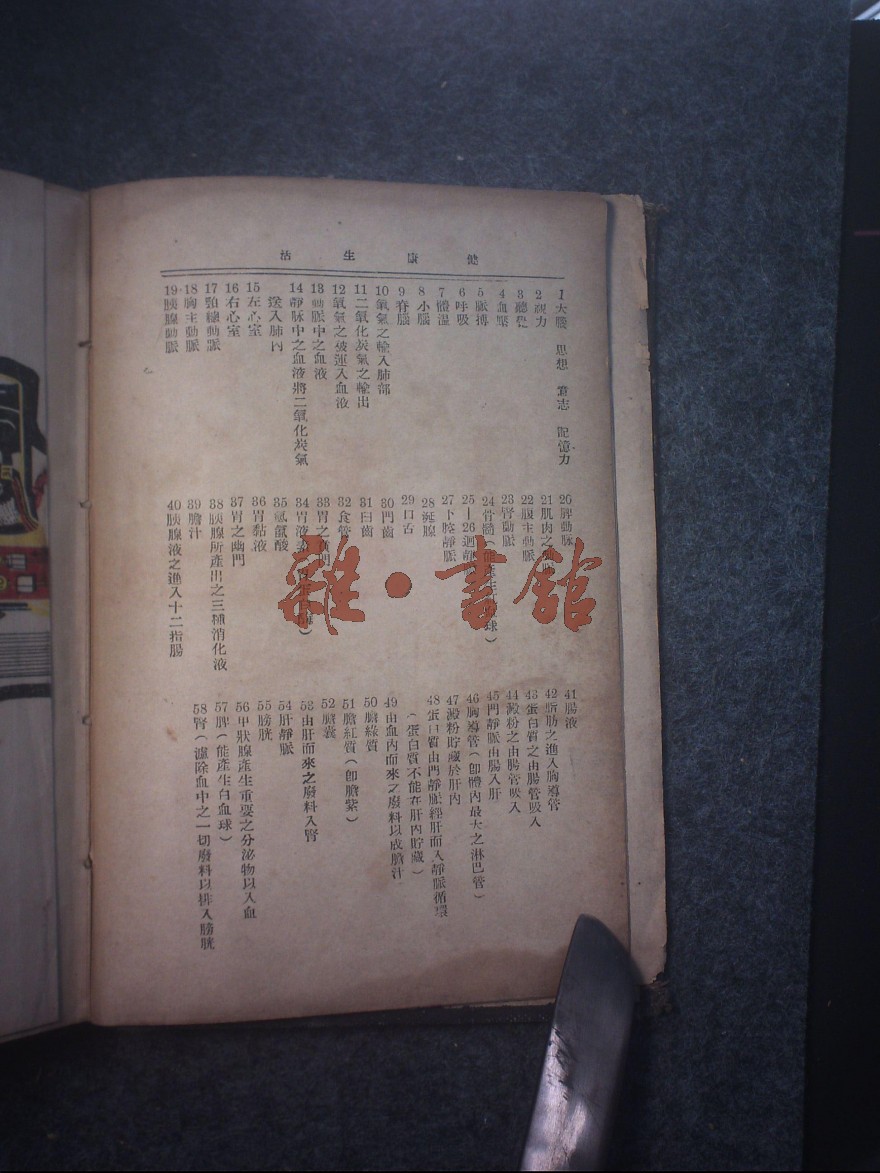 健康生活
1大腦 思想 意志 記憶力
2視力
3聽覺
4血壓
5脈搏
6呼吸
7體溫
8小腦
9脊腦
10氧氣之輸入肺部
11二氧化炭氣之輸出
12氧氣之被運入血液
13動脈中之血液
14靜脉中之血液將二氧化炭氣
送入肺內
15左心室
16右心室
17頸總動脈
18胸主動脈
19胰腺動脈
20脾動脉
21肌肉之動脈
22腹主動脈
23腎動脈
24骨髓（能產生紅血球）
25—26迴靜
27下腔靜脈
28涎腺
29口舌
30門齒
31臼齒
32食管
33胃之賁門
34胃液
35氫氯酸
36胃黏液
37胃之幽門
38胰腺所產出之三種消化液
39膽汁
40胰腺液之進入十二指腸
41腸液
42脂肪之進入胸導管
43蛋白質之由腸管吸入
44澱粉之由腸管吸入
45門靜脈由腸入肝
46胸導管（卽體內最大之淋巴管）
47澱粉貯藏於肝內
48蛋白質由門靜脈經肝而入靜脈循環
（蛋白質不能在肝內貯藏）
49由血內而來之廢料以成膽汁
50膽綠質
51膽紅質（卽膽紫）
52膽囊
53由肝而來之廢料入腎
54肝靜脈
55膀胱
56甲狀腺產生重要之分泌物以入血
57脾（能產生白血球）
58腎（濾除血中之一切廢料以排入膀胱
雜·書館